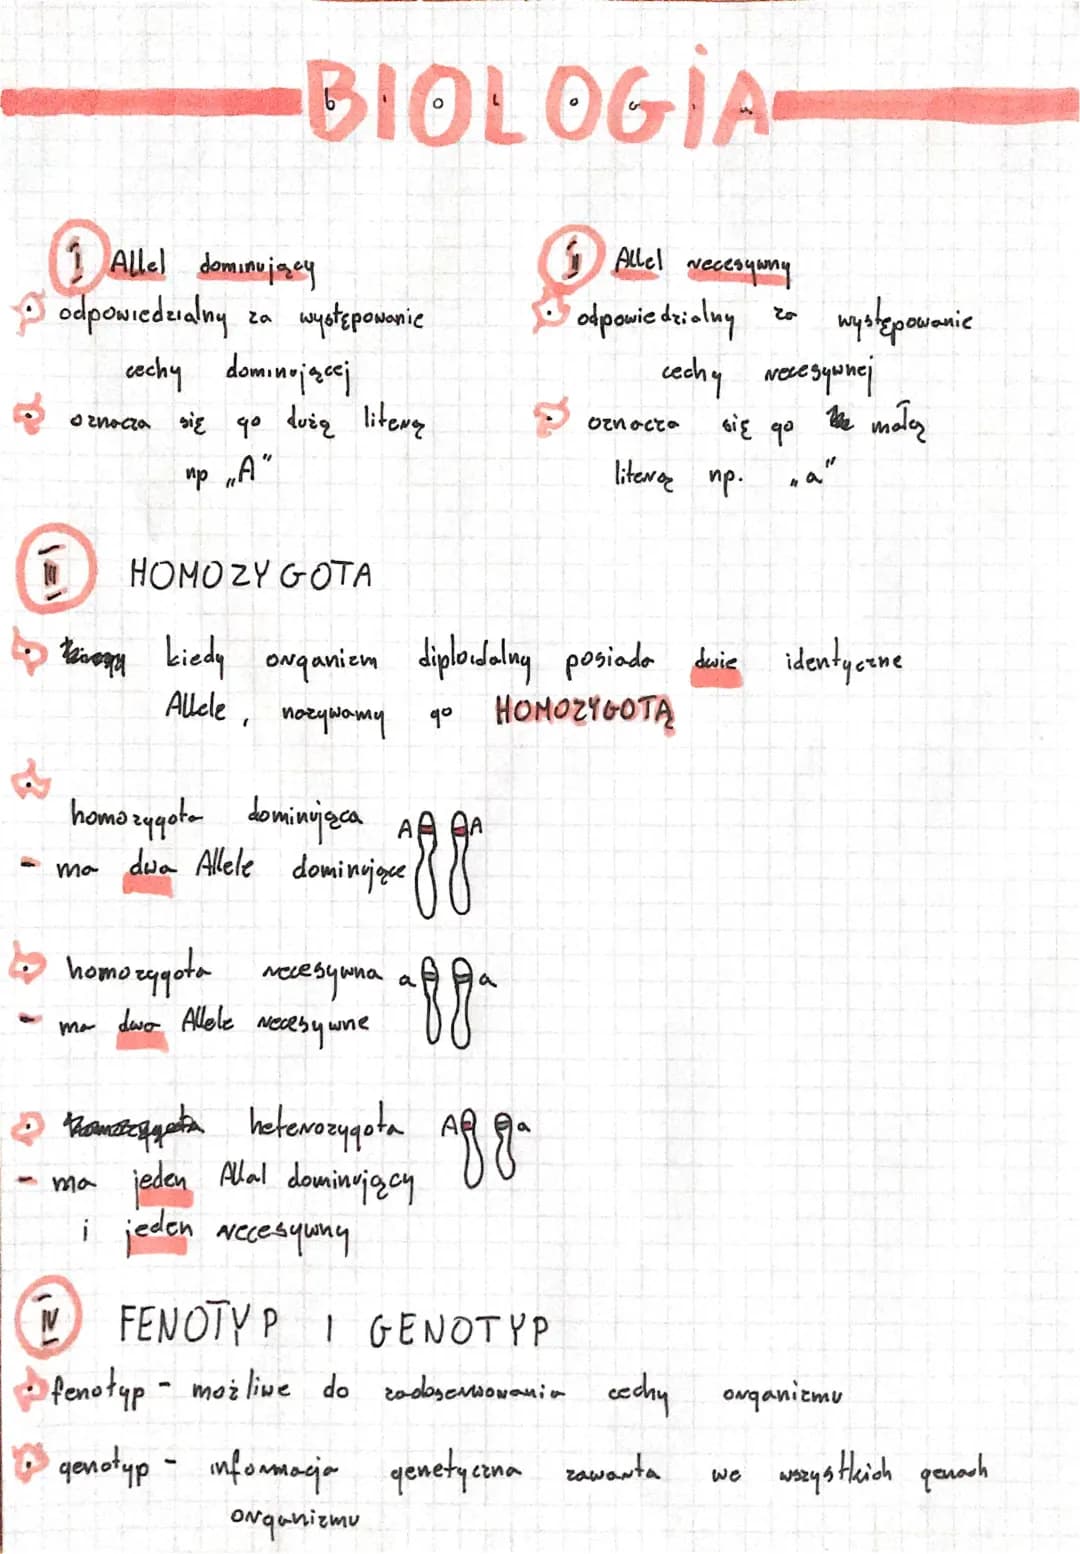 BIOLOGIA
b i o l o g i a
I Allel dominujący
odpowiedzialny za występowanie
cechy dominującej
oznacza się go dużą literą
np „A”
II Allel recesywny
odpowiedzialny za występowanie
cechy recesywnej
oznacza się go małą
literą np. „a”
III HOMOZYGOTA
kiedy organizm diploidalny posiada dwie identyczne
Allele, nazywamy go HOMOZYGOTĄ
homozygota dominująca A A
- ma dwa Allele dominujące
homozygota recesywna a a
- ma dwa Allele recesywne
heterozygota A a
- ma jeden Allal dominujący
i jeden recesywny
IV FENOTYP I GENOTYP
fenotyp - możliwe do zaobserwowania cechy organizmu
genotyp - informacja genetyczna zawarta we wszystkich genach
organizmu